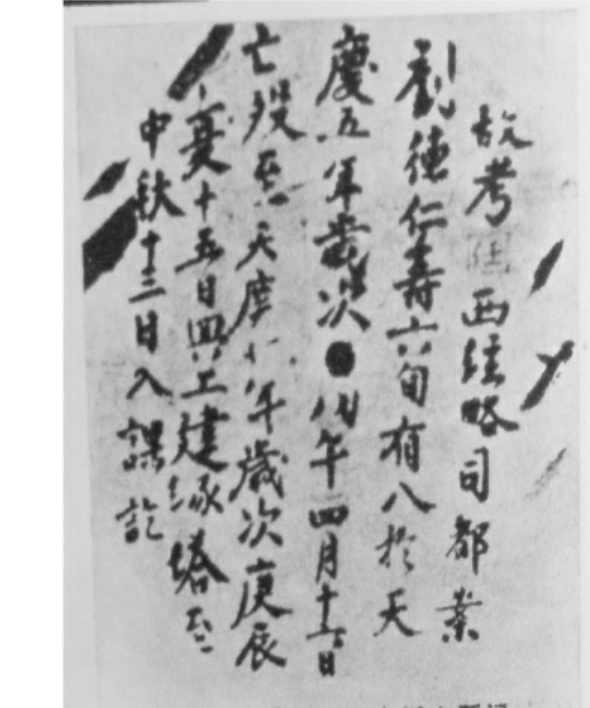 故考西經略司都案
劉德仁壽六旬有八於天
慶五年歲次戊午四月十六日
亡歿至天慶年歲次庚辰
夏十五日興工建緣塔至
中秋十三日入課訖